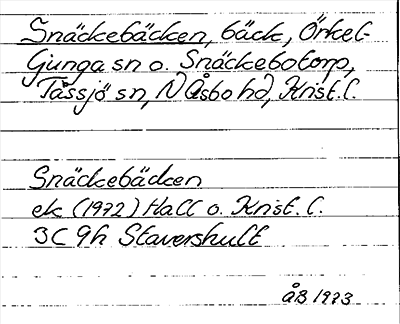 Snäckebäcken, bäck, Örkel-
ljunga sn o. Snäckebotorp,
Tåssjö sn, N Åsbo hd, Krist. l.
Snäckebäcken
ek (1972) Hall o. Krist. l.
3C 9h Stavershult
åB 1973